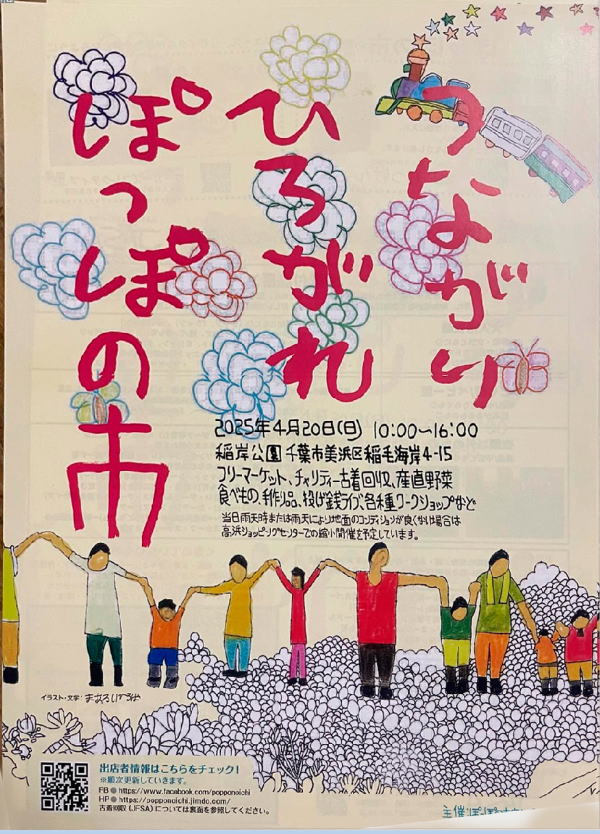 つながり
ひろがれ
ぽっぽの市
2025年4月20日(日) 10:00〜16:00
稲岸公園 千葉市美浜区稲毛海岸4-15
フリーマーケット、チャリティー古着回収、産直野菜
食べもの、手作り品、投げ銭ライブ、各種ワークショップなど
当日雨天時または雨天により地面のコンディションが良くない場合は
高浜ショッピングセンターでの縮小開催を予定しています。
イラスト・文字:
出店者情報はこちらをチェック!
※順次更新していきます。
FB ● https://www.facebook.com/popponoichi
HP ● https://popponoichi.jimdo.com/
古着回収(JFSA)については裏面を参照してください。
主催:ぽぽ